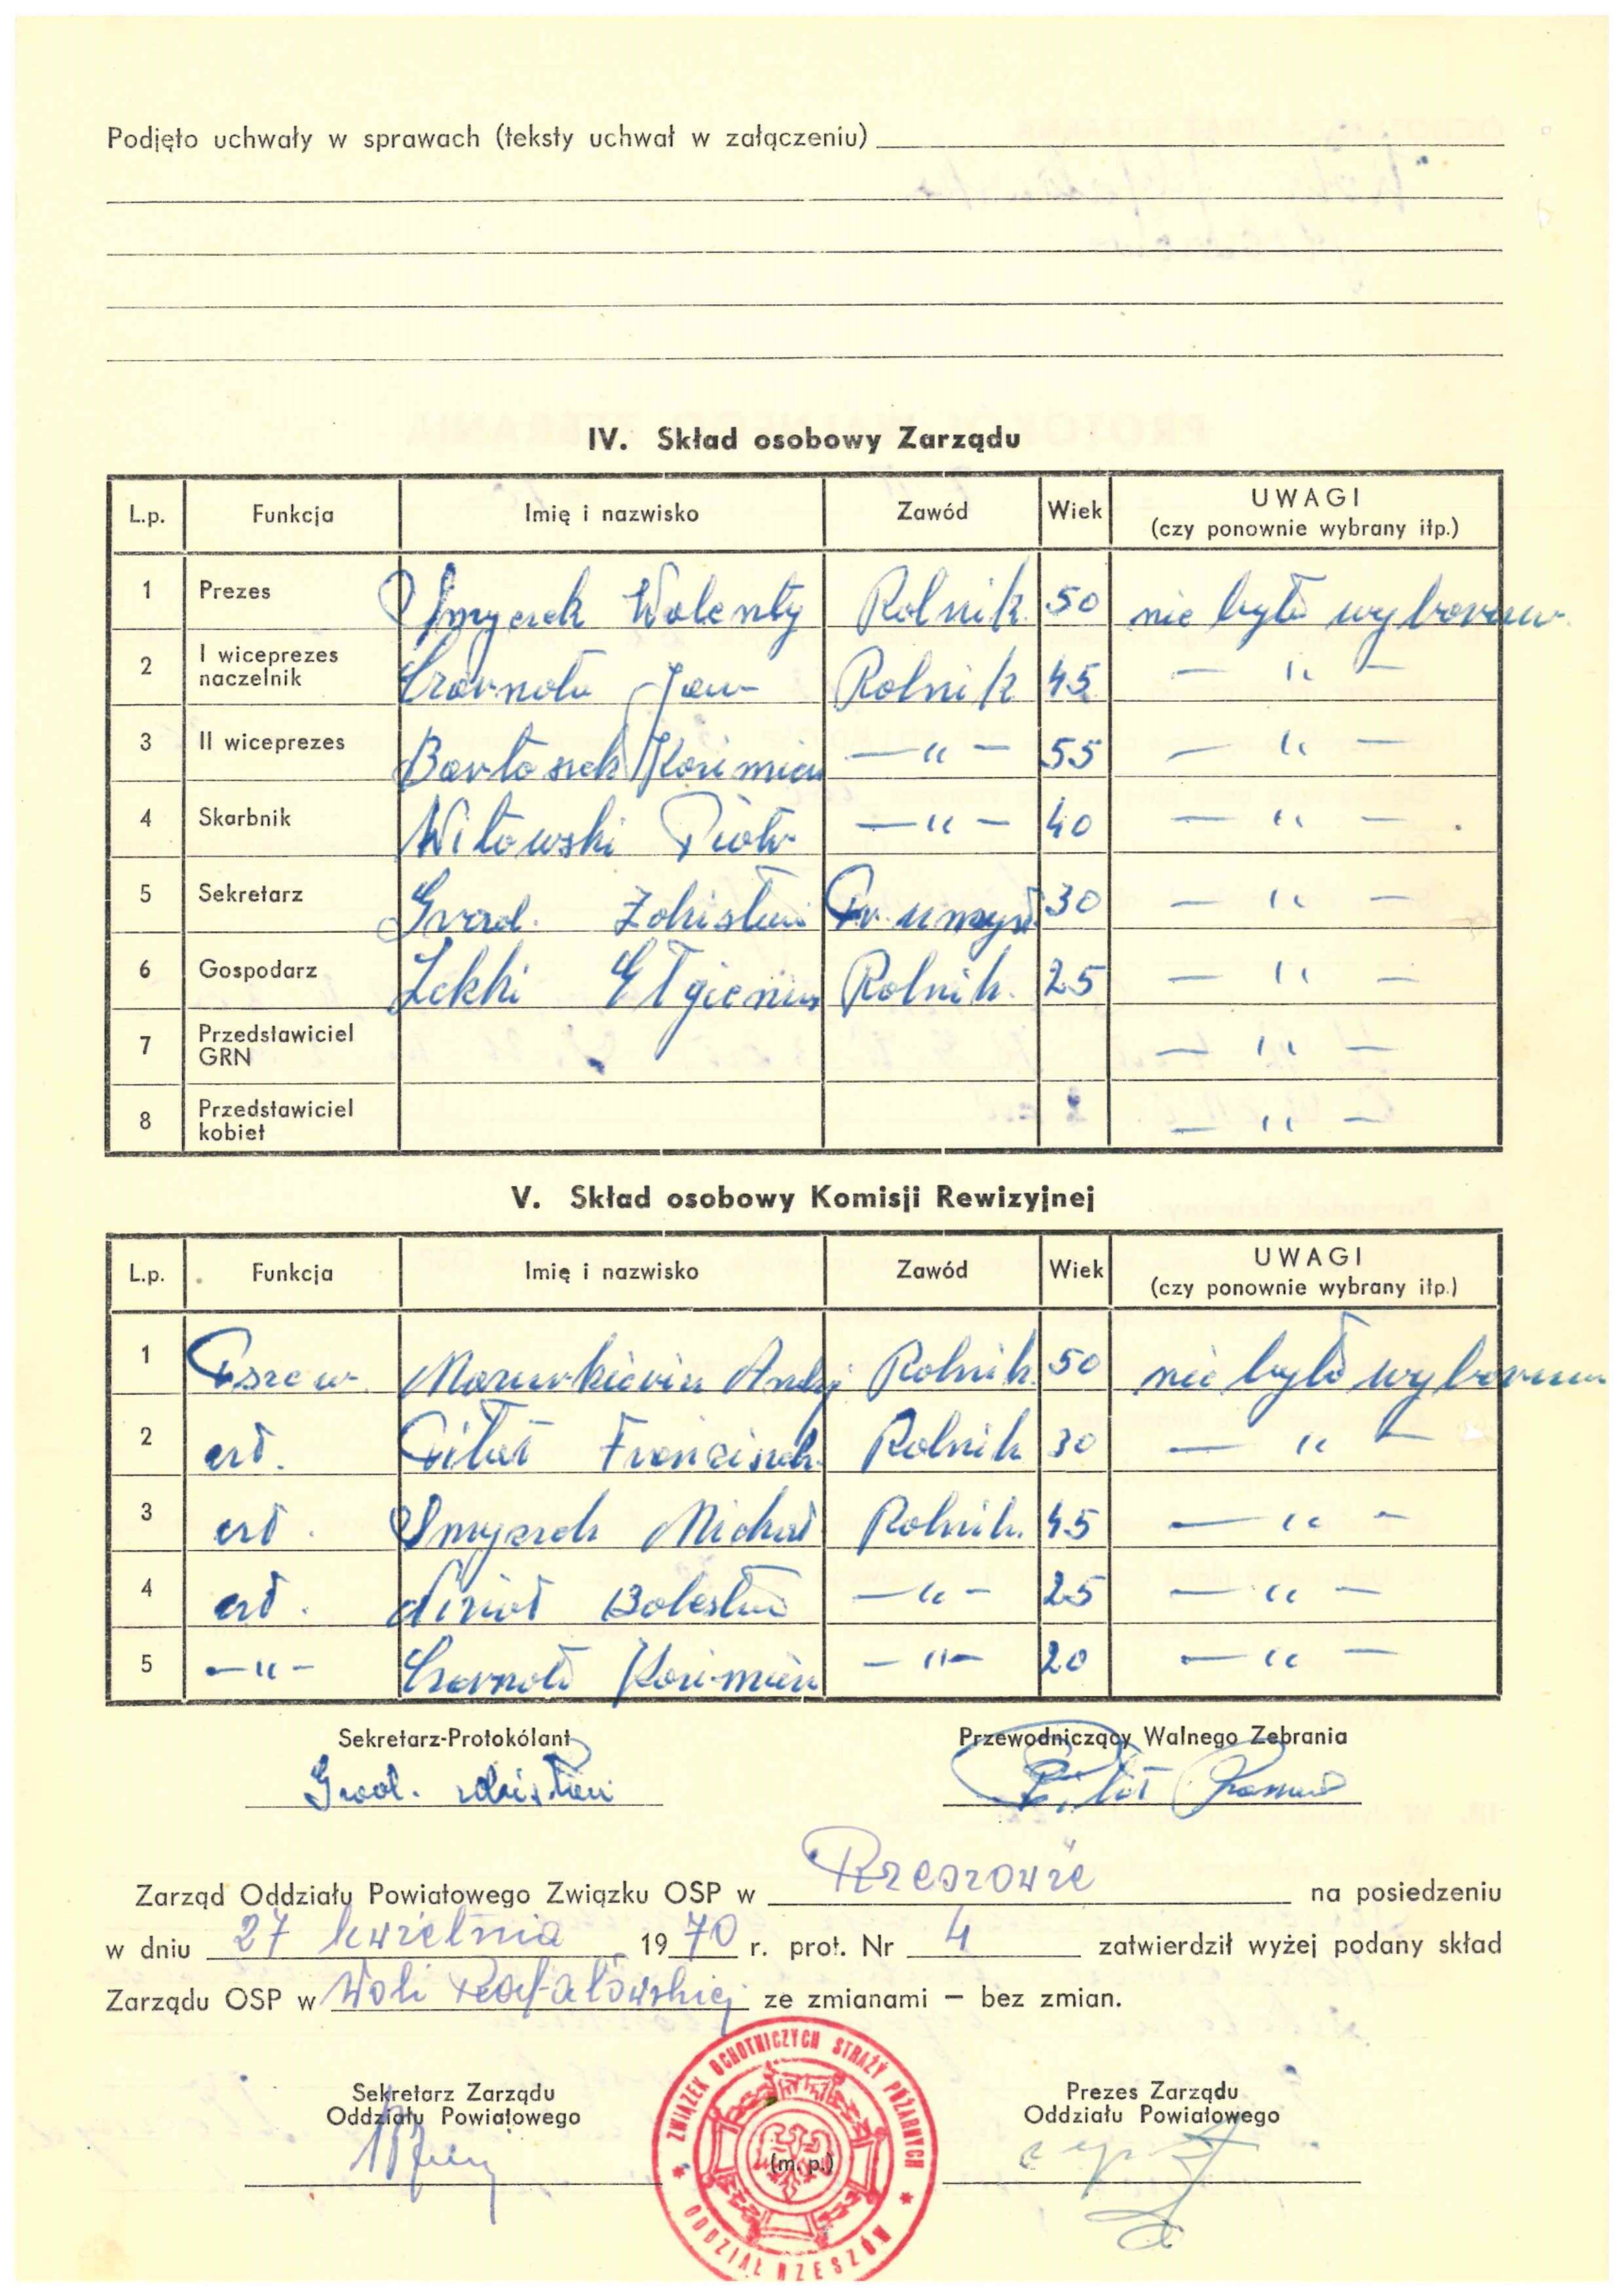 Podjęto uchwały w sprawach (teksty uchwał w załączeniu)
IV. Skład osobowy Zarządu
L.p. Funkcja Imię i nazwisko Zawód Wiek UWAGI
(czy ponownie wybrany itp.)
1 Prezes Smyczek Walenty Rolnik 50 nie było wyborów
2 I wiceprezes naczelnik Czarnota Jan Rolnik 45 — " —
3 II wiceprezes Bartoszek Kazimierz — " — 55 — " —
4 Skarbnik Witowski Piotr — " — 40 — " —
5 Sekretarz Grad. Zdzisław Pr. umysł 30 — " —
6 Gospodarz Rolnik. 25 — " —
7 Przedstawiciel GRN — " —
8 Przedstawiciel kobiet — " —
V. Skład osobowy Komisji Rewizyjnej
L.p. Funkcja Imię i nazwisko Zawód Wiek UWAGI
(czy ponownie wybrany itp.)
1 Przew. Mazurkiewicz Rolnik. 50 nie było wyborów
2 czł. Pitat Franciszek Rolnik 30 — " —
3 czł. Smyczek Michał Rolnik. 45 — " —
4 czł. Bolesław — " — 25 — " —
5 — " — Czarnota Kazimierz — " — 20 — " —
Sekretarz-Protokólant Przewodniczący Walnego Zebrania
Grad. Zdzisław
Zarząd Oddziału Powiatowego Związku OSP w Rzeszowie na posiedzeniu
w dniu 27 kwietnia 1970 r. prot. Nr 4 zatwierdził wyżej podany skład
Zarządu OSP w Woli Rafałowskiej ze zmianami — bez zmian.
Sekretarz Zarządu Prezes Zarządu
Oddziału Powiatowego Oddziału Powiatowego
(m. p.)
ZWIĄZEK OCHOTNICZYCH STRAŻY POŻARNYCH * ODDZIAŁ RZESZÓW *